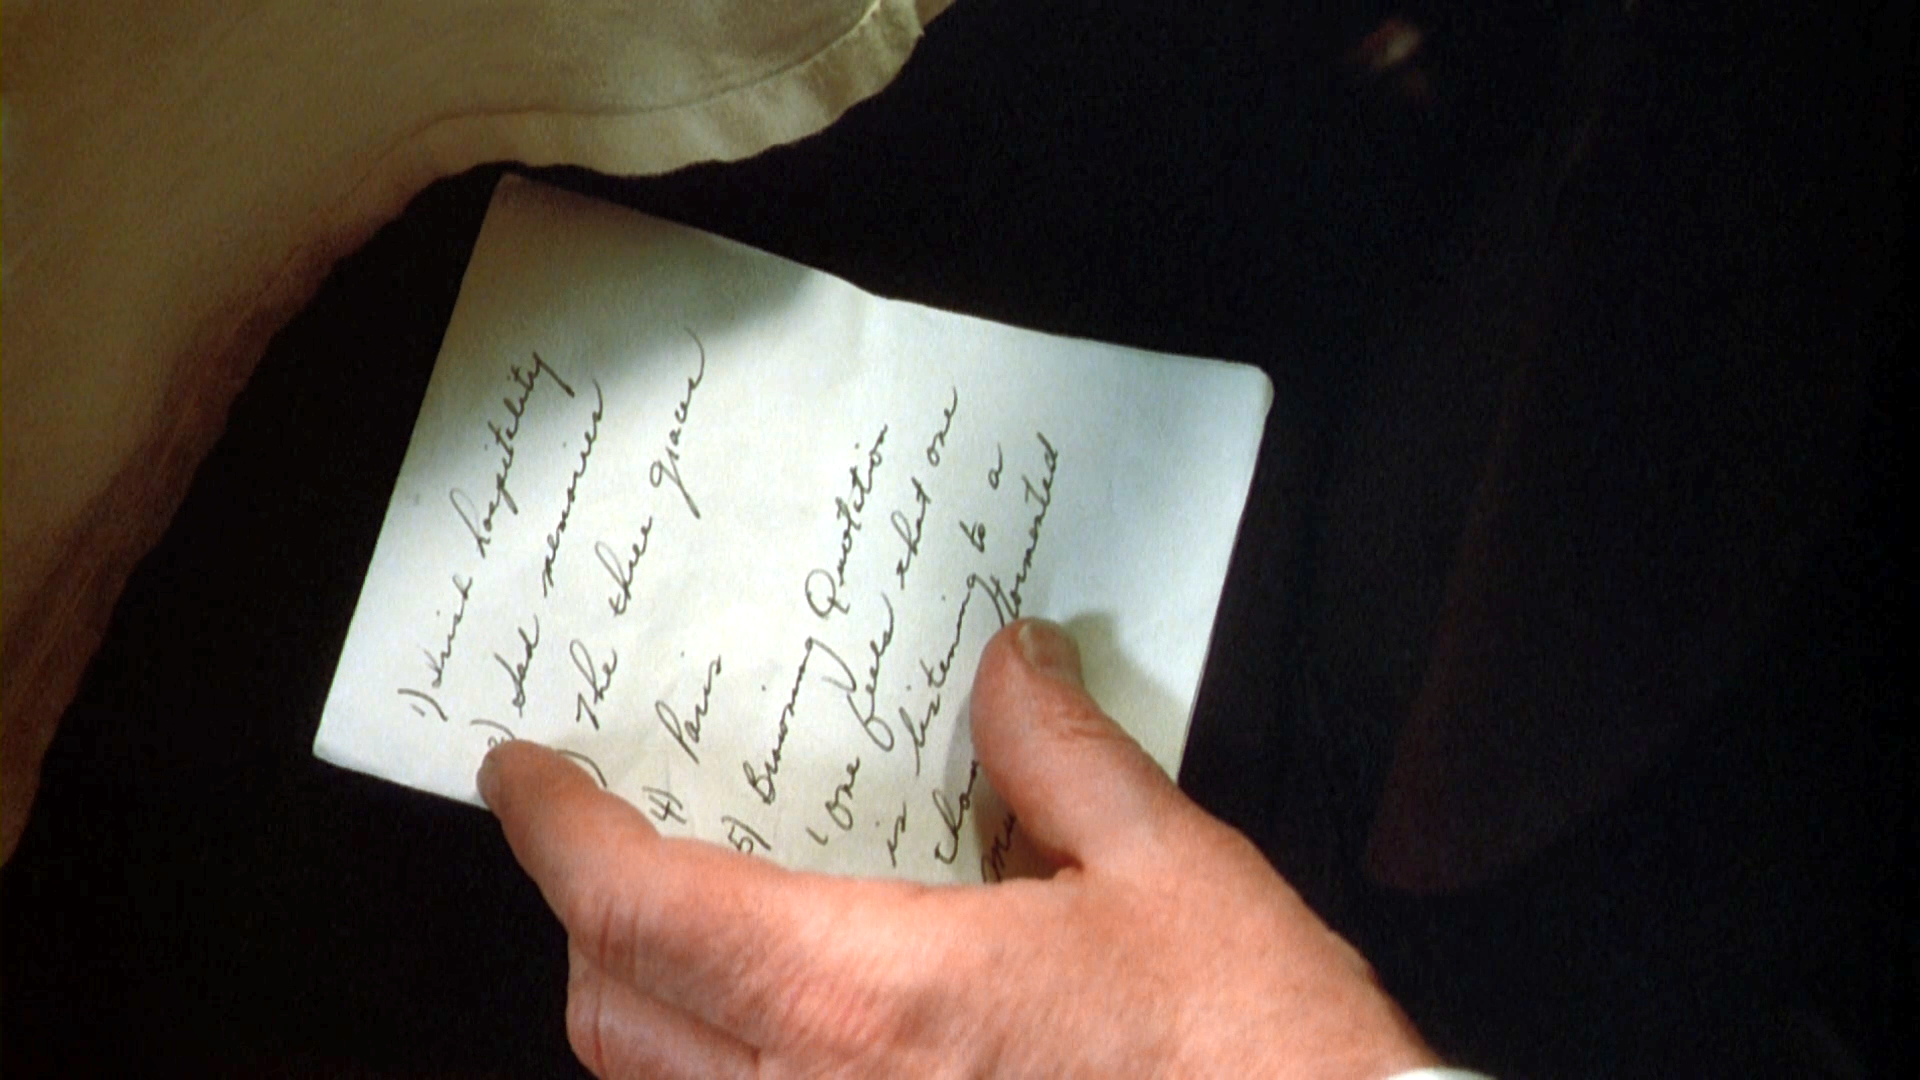 1) Irish hospitality
2) Sad memories
) The three graces
4) Paris
5) Browning Quotation
'One feels that one
is listening to a
tormented